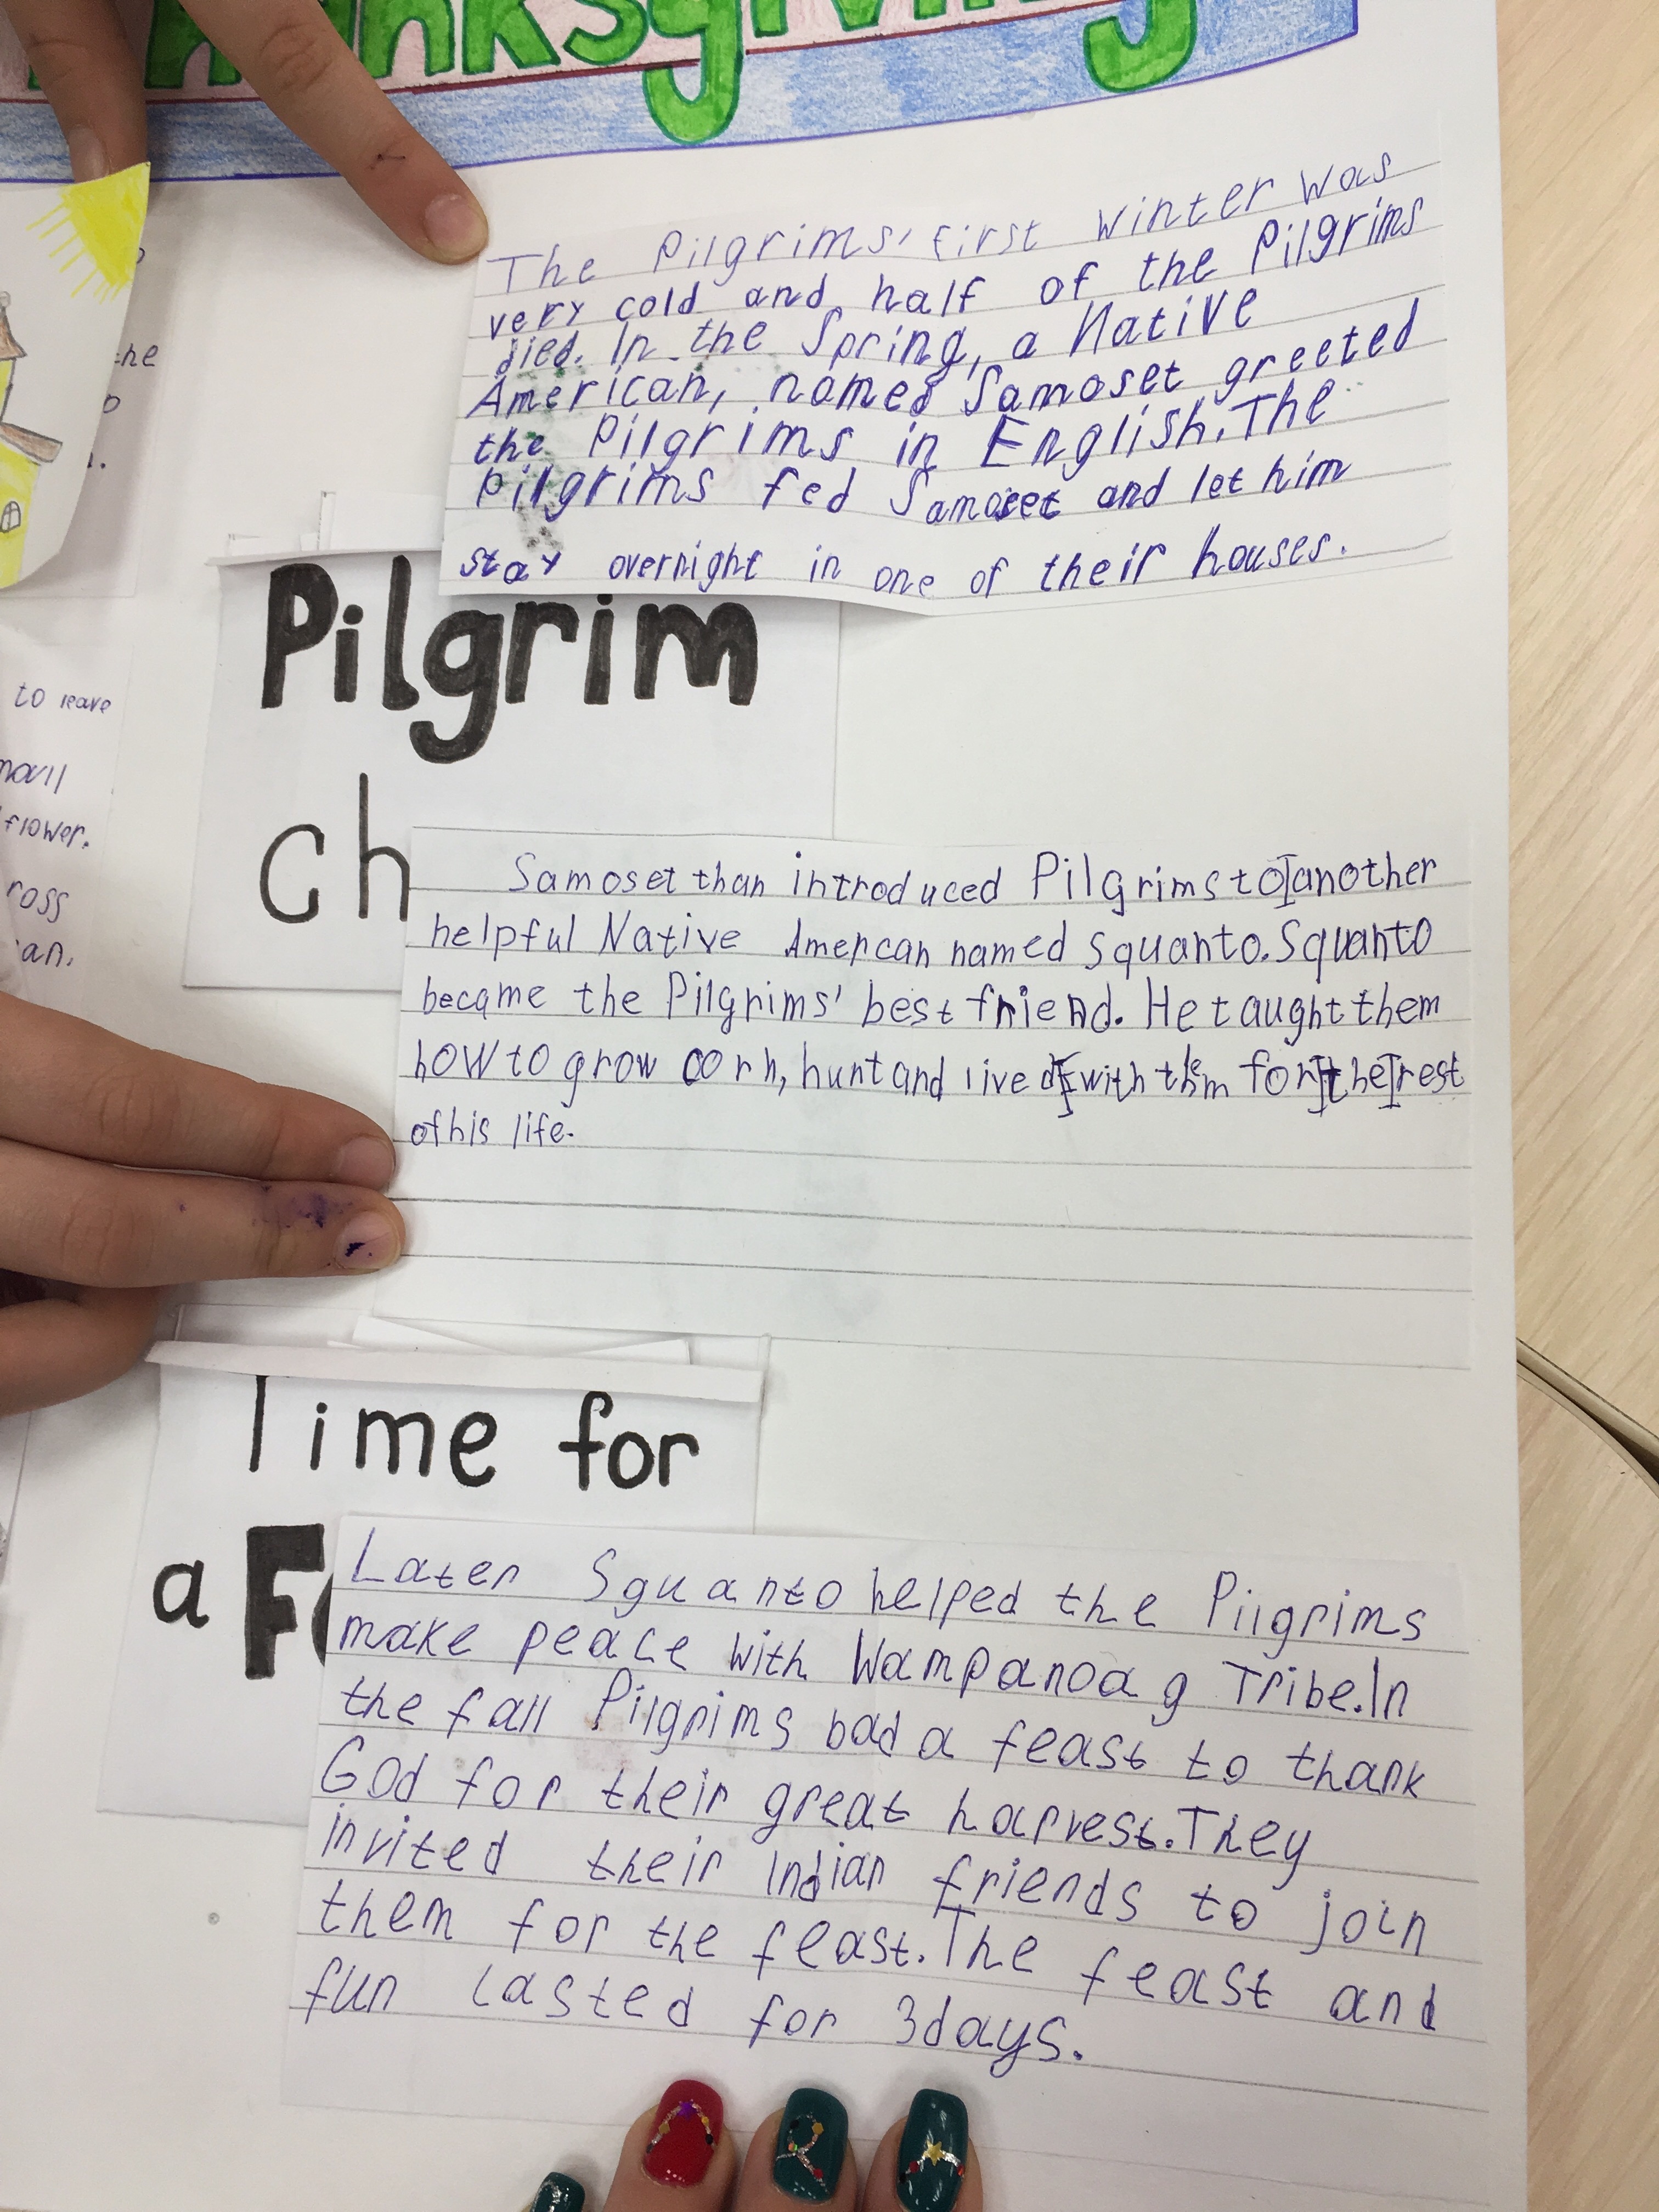 The Pilgrims' first Winter was
very cold and half of the Pilgrims
died. In the Spring, a Native
American, named Samoset greeted
the Pilgrims in English. The
Pilgrims fed Samoset and let him
stay overnight in one of their houses.
Pilgrim
Ch
Samoset than introduced Pilgrims to another
helpful Native Amercan named Squanto. Squanto
became the Pilgrims' best friend. He taught them
how to grow corn, hunt and lived with them for the rest
of his life.
Time for
a
Later Sguanto helped the Pilgrims
make peace with Wampanoag Tribe. In
the fall Pilgrims bad a feast to thank
God for their great harvest. They
invited their Indian friends to join
them for the feast. The feast and
fun lasted for 3 days.
to leave
flower.